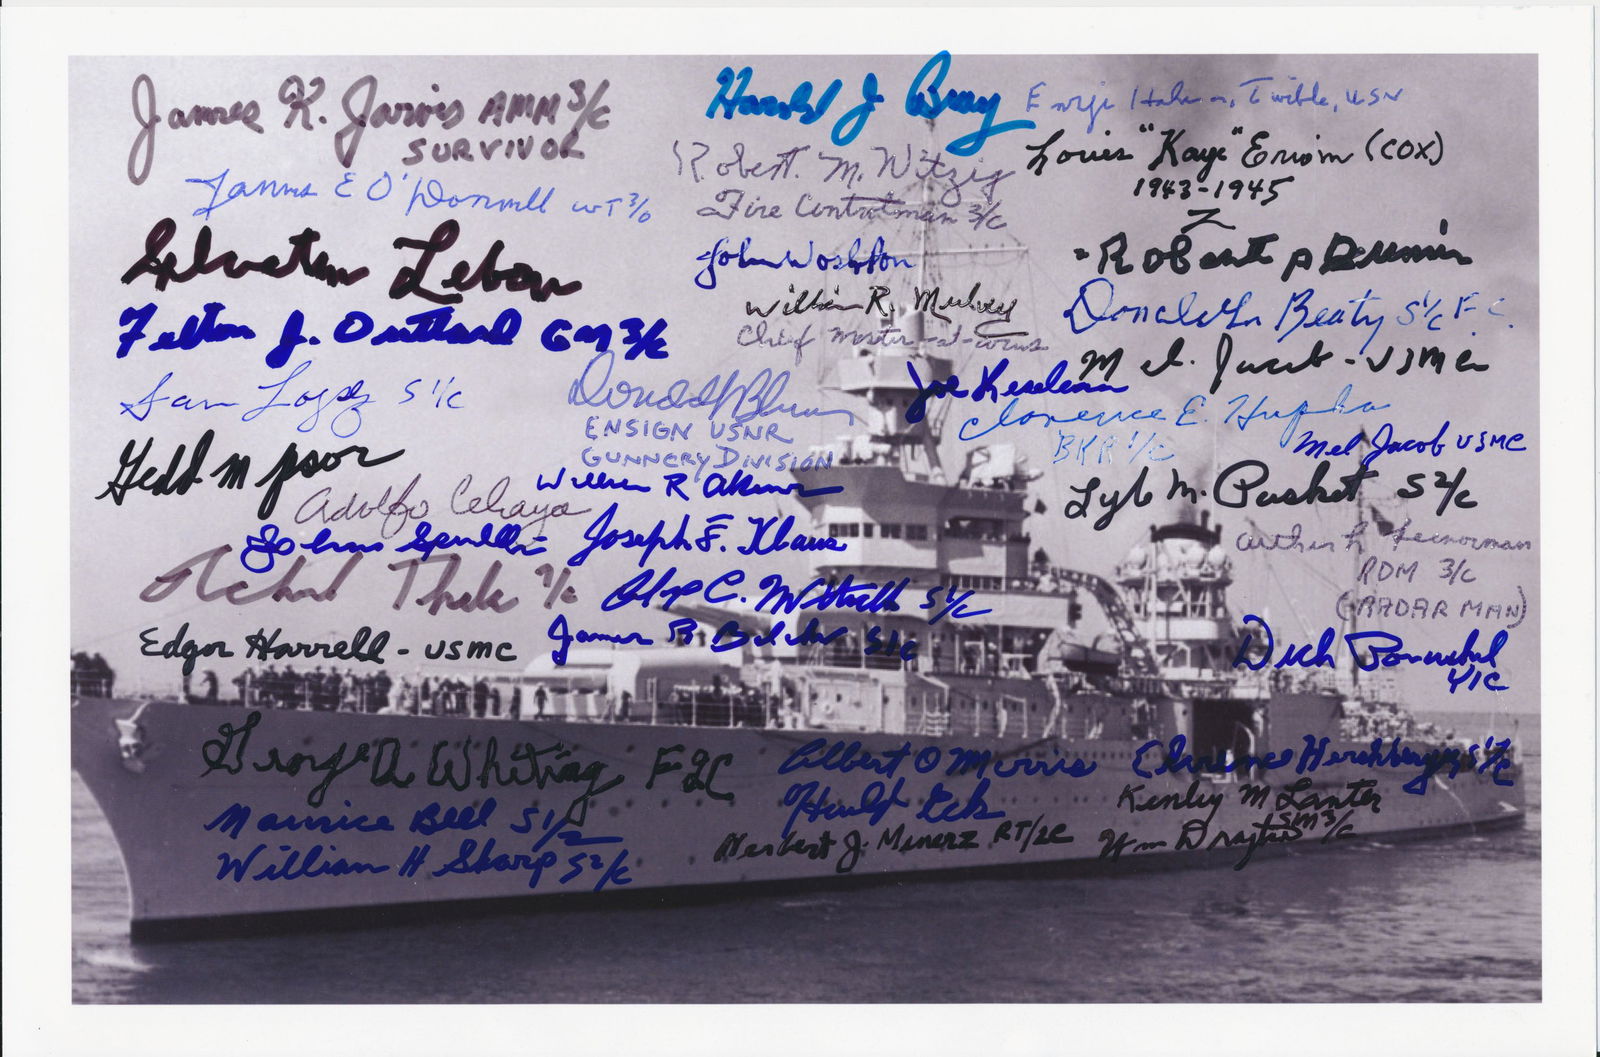 James K. Jarvis AMM 3/C
SURVIVOR
Harold J. Bray
Twible, USN
Louis "Kayo" Erwin (COX)
1943-1945
James E O'Donnell WT 3/c
Robert. M. Witzig
Fire Controlman 3/C
Salvatore Lebow
John Woolston
Robert P
Felton J. Outland GM 3/C
William R. Mulvey
Chief Master-at-arms
Donald L Beaty S 1/C F.C.
Mel. Jacob - USMC
Sam Lopez S 1/C
Donald Blum
ENSIGN USNR
GUNNERY DIVISION
Joe Kiselica
Clarence E. Hupka
BKR 1/C
Mel Jacob USMC
Adolfo Celaya
William R Akines
Lyle M. Pasket S 2/C
John Spinelli
Joseph F. Klaus
Arthur L
RDM 3/C
(RADAR MAN)
Richard Thelen 2/c
C. S 1/C
Edgar Harrell - USMC
James R. Belcher S1/c
Dick Paroubek
Y1C
George A Whiting F2C
Albert O Morris
Clarence Hershberger S 1/C
Maurice Bell S 1/2
Harold Eck
Kenley M Lanter
SM 3/C
William H Sharp S 2/C
Herbert J. Minerz RT/2C
Wm Drayton